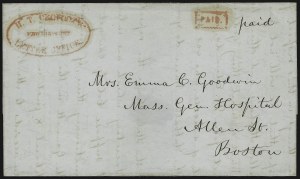 PAID.
paid
LETTER OFFICE
Mrs. Emma C. Goodwin
Mass. Gen. Hospital
Allen St.
Boston